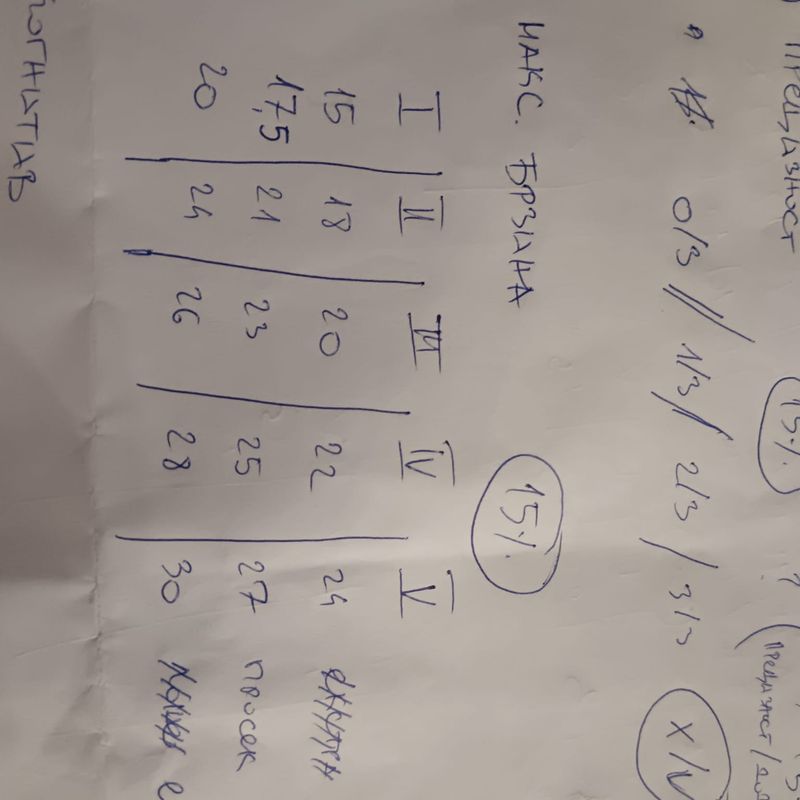 ПРЕЦИЗНОСТ 15%
0/3 // 1/3 / 2/3 / 3/3
МАКС. БРЗИНА 15%
I II III IV V
15 18 20 22 24
17,5 21 23 25 27 просек
20 24 26 28 30
ОГНИТИВ